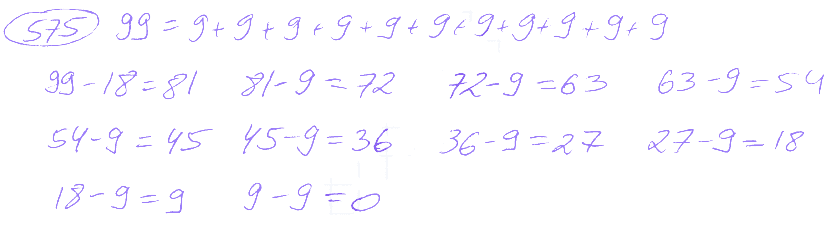 575 99 = 9 + 9 + 9 + 9 + 9 + 9 + 9 + 9 + 9 + 9 + 9
99 - 18 = 81 81 - 9 = 72 72 - 9 = 63 63 - 9 = 54
54 - 9 = 45 45 - 9 = 36 36 - 9 = 27 27 - 9 = 18
18 - 9 = 9 9 - 9 = 0